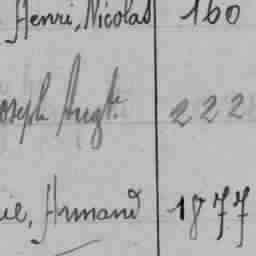 Henri, Nicolas 160
oseph Augte 222
ie, Armand 1877